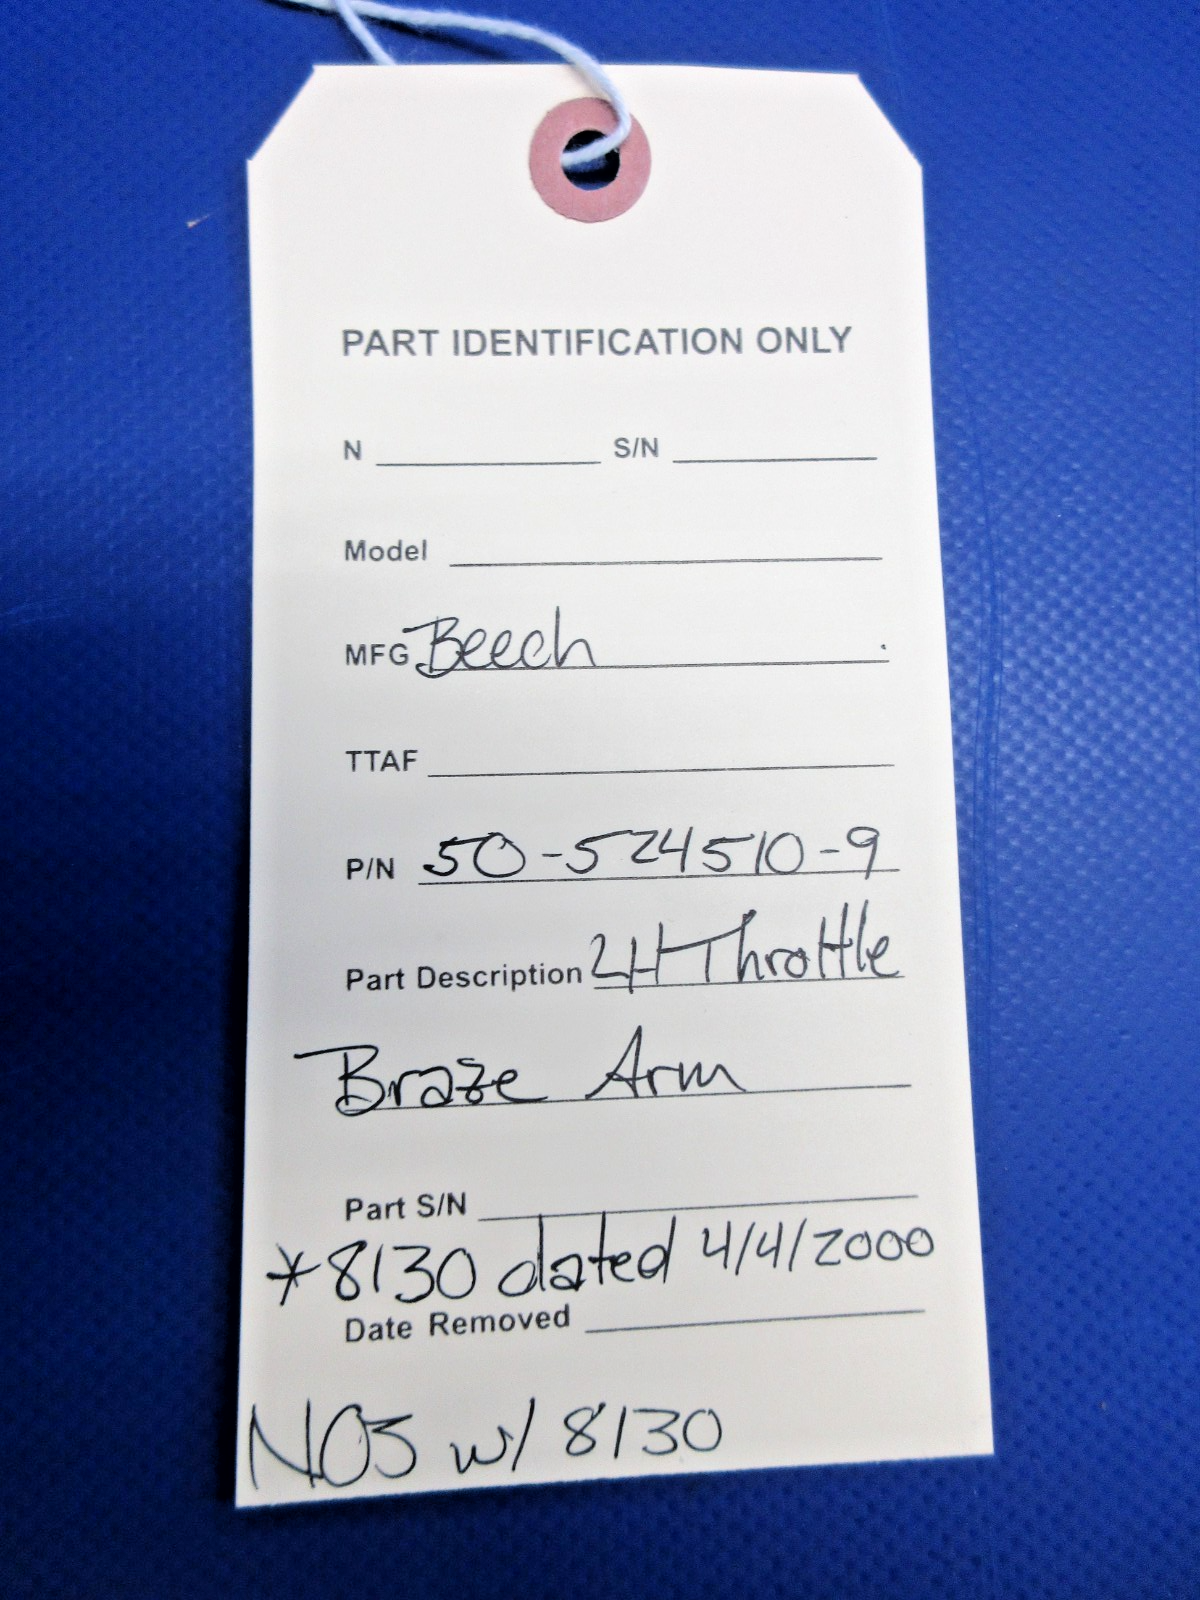 PART IDENTIFICATION ONLY
N S/N
Model
MFG Beech
TTAF
P/N 50-524510-9
Part Description LH Throttle
Braze Arm
Part S/N
*8130 dated 4/4/2000
Date Removed
NOS w/ 8130